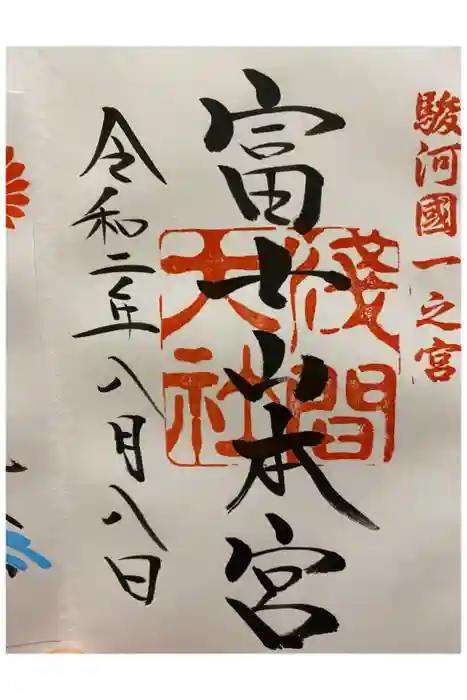 駿河國一之宮
富士山本宮
淺間
大社
令和二年八月八日